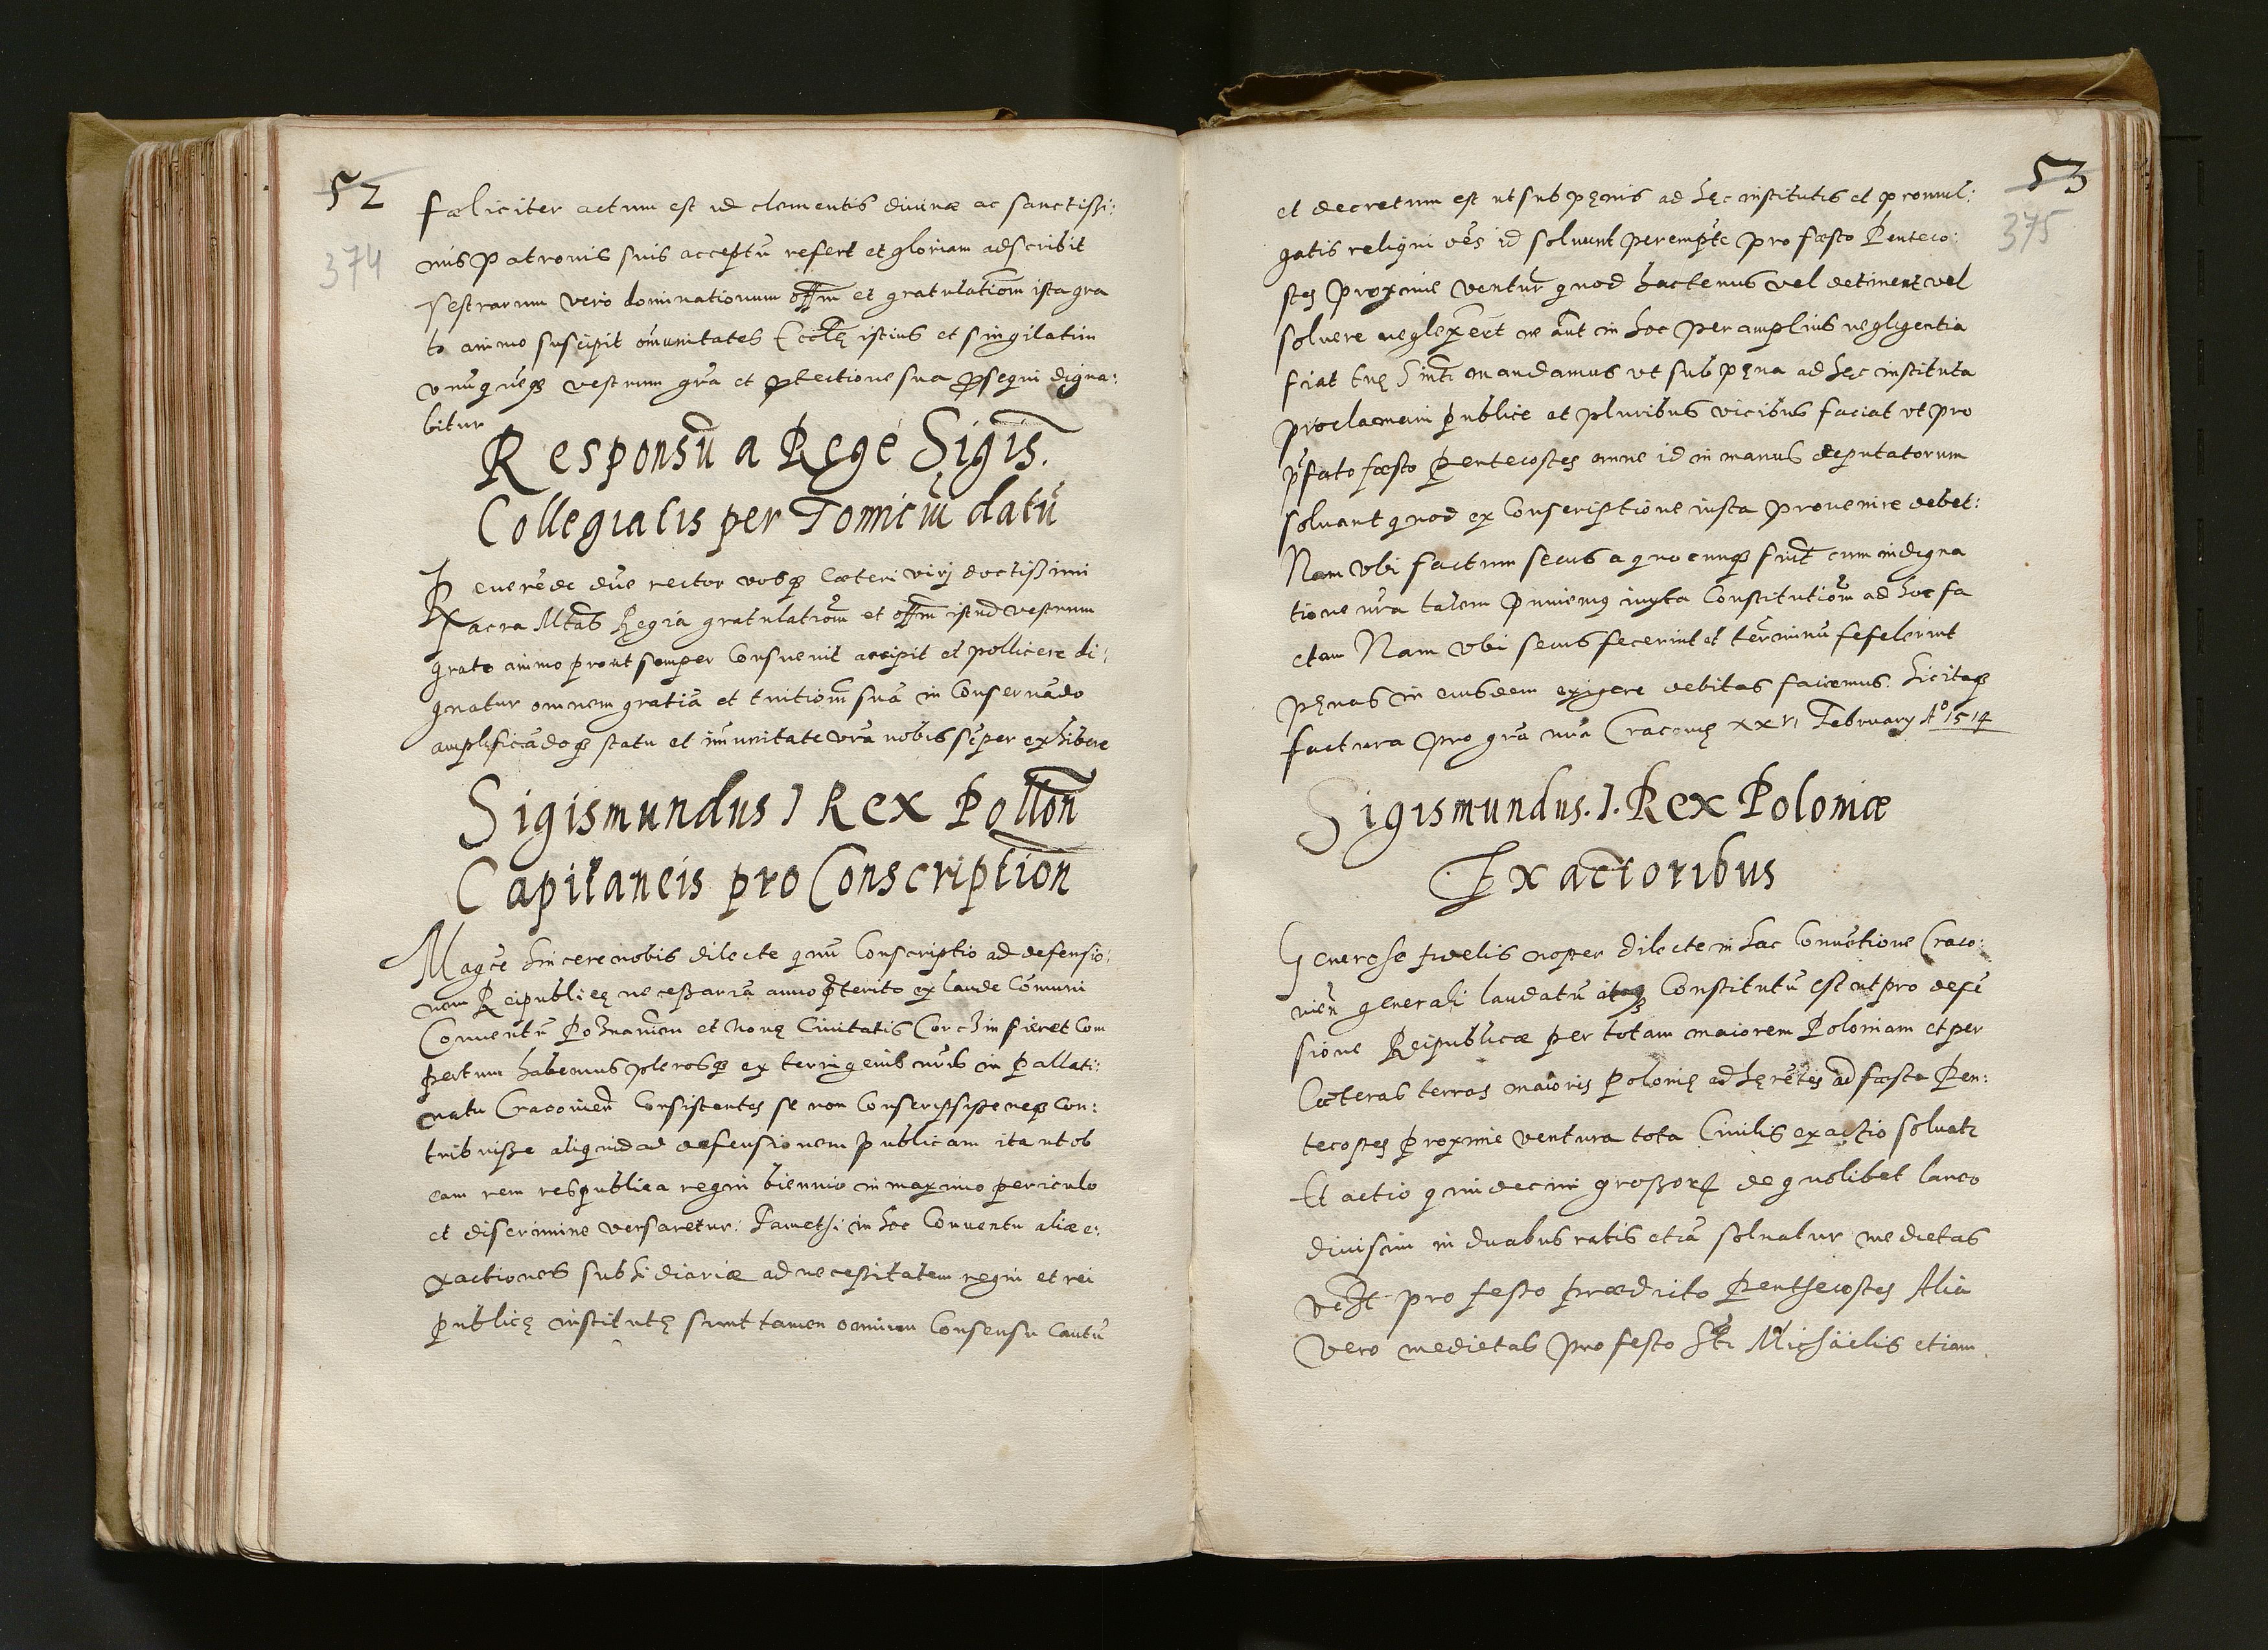 52
374
fæliciter actum est id clementis diuinæ ac sanctissi:
mis Patronis suis acceptũ refert et gloriam adscribit
Vestrarum vero dominationum offm et gratulationm ista gra
to animo suscipit omunitates Ecclię istius et singilatim
vnũquẽqz vestrum grã et ptectione sua prosequi digna:
bitur
Responsũ a Rege Sigis.
Collegiatis per Tomiciũ datũ
Reuerẽde dñe rector vosqz cæteri virj doctissimi
Sacra Mtãs Regia gratulationm et offm istud vestrum
grato animo prout semper consueuit accipit et pollicere di:
gnatur omnem gratiã et tuitionm suã in conseruãdo
amplificãdoqz statu et imunitate vrã nobis sẽper exhibere
Sigismundus I Rex Pollon
Capitaneis pro Conscription
Magce sincere nobis dilecte quũ conscriptio ad defensio:
nem Reipublicę necessariã anno pterito ex laude comuni
Conuentũ Poznanien et Nouę Ciuitatis Corchin fieret com
pertum habemus plerosqz ex terrigenis nris in pallati:
natu Cracouien consistentes se non conscripsisse neqz con:
tribuisse aliquid ad defensionem publicam ita ut ob
eam rem respublica regni biennio in maximo periculo
et discrimine versaretur: Tametsi in hoc conuentu aliæ e:
xactiones subsidiariæ ad necessitatem regni et rei
publicę institutę sunt tamen omnium consensu cautũ
53
375
et decretum est ut sub pęnis ad hęc institutis et promul:
gatis religni oẽs id soluunt perempte pro fæsto Penteco:
stes proxime ventur quod hactenus vel detinent vel
soluere neglexert ne aut in hoc per amplius negligentia
fiat tuę Sintī mandamus vt sub pęna ad hęc instituta
proclamari publice et pluribus vicibus faciat vt pro
pfato fæsto Pentecostes omne id in manus deputatorum
soluant quod ex conscriptione iusta prouenire debet:
Nam vbi factum secus a quocunqz fuit cum indigna
tione nra talem puniemus iuxta constitutionm ad hoc fa
ctam Nam vbi secus fecerint et terminũ fefelerint
pęnas in eiusdem exigere debitas faciemus. Sic itaqz
factura pro gra nra Cracouię xxvi February Ao 1514
Sigismundus. I. Rex Poloniæ
Exactoribus
Generose fidelis noster dilecte in hac conuẽtione Craco:
uień generali laudatũ itaqz constitutũ est ut pro defẽ
sione Reipublicæ per totam maiorem Poloniam et per
Cæteras terras maioris Polonię ad hęrẽtes ad fæsta Pen:
tecostes proxime ventura tota Ciuilis exactio soluatr
Et actio quindecim grossorum de quolibet laneo
diuisim in duabus ratis etiã soluatur medietas
vclt pro festo prædicto Penthecostes Alia
vero medietas pro festo Sti Michäelis etiam